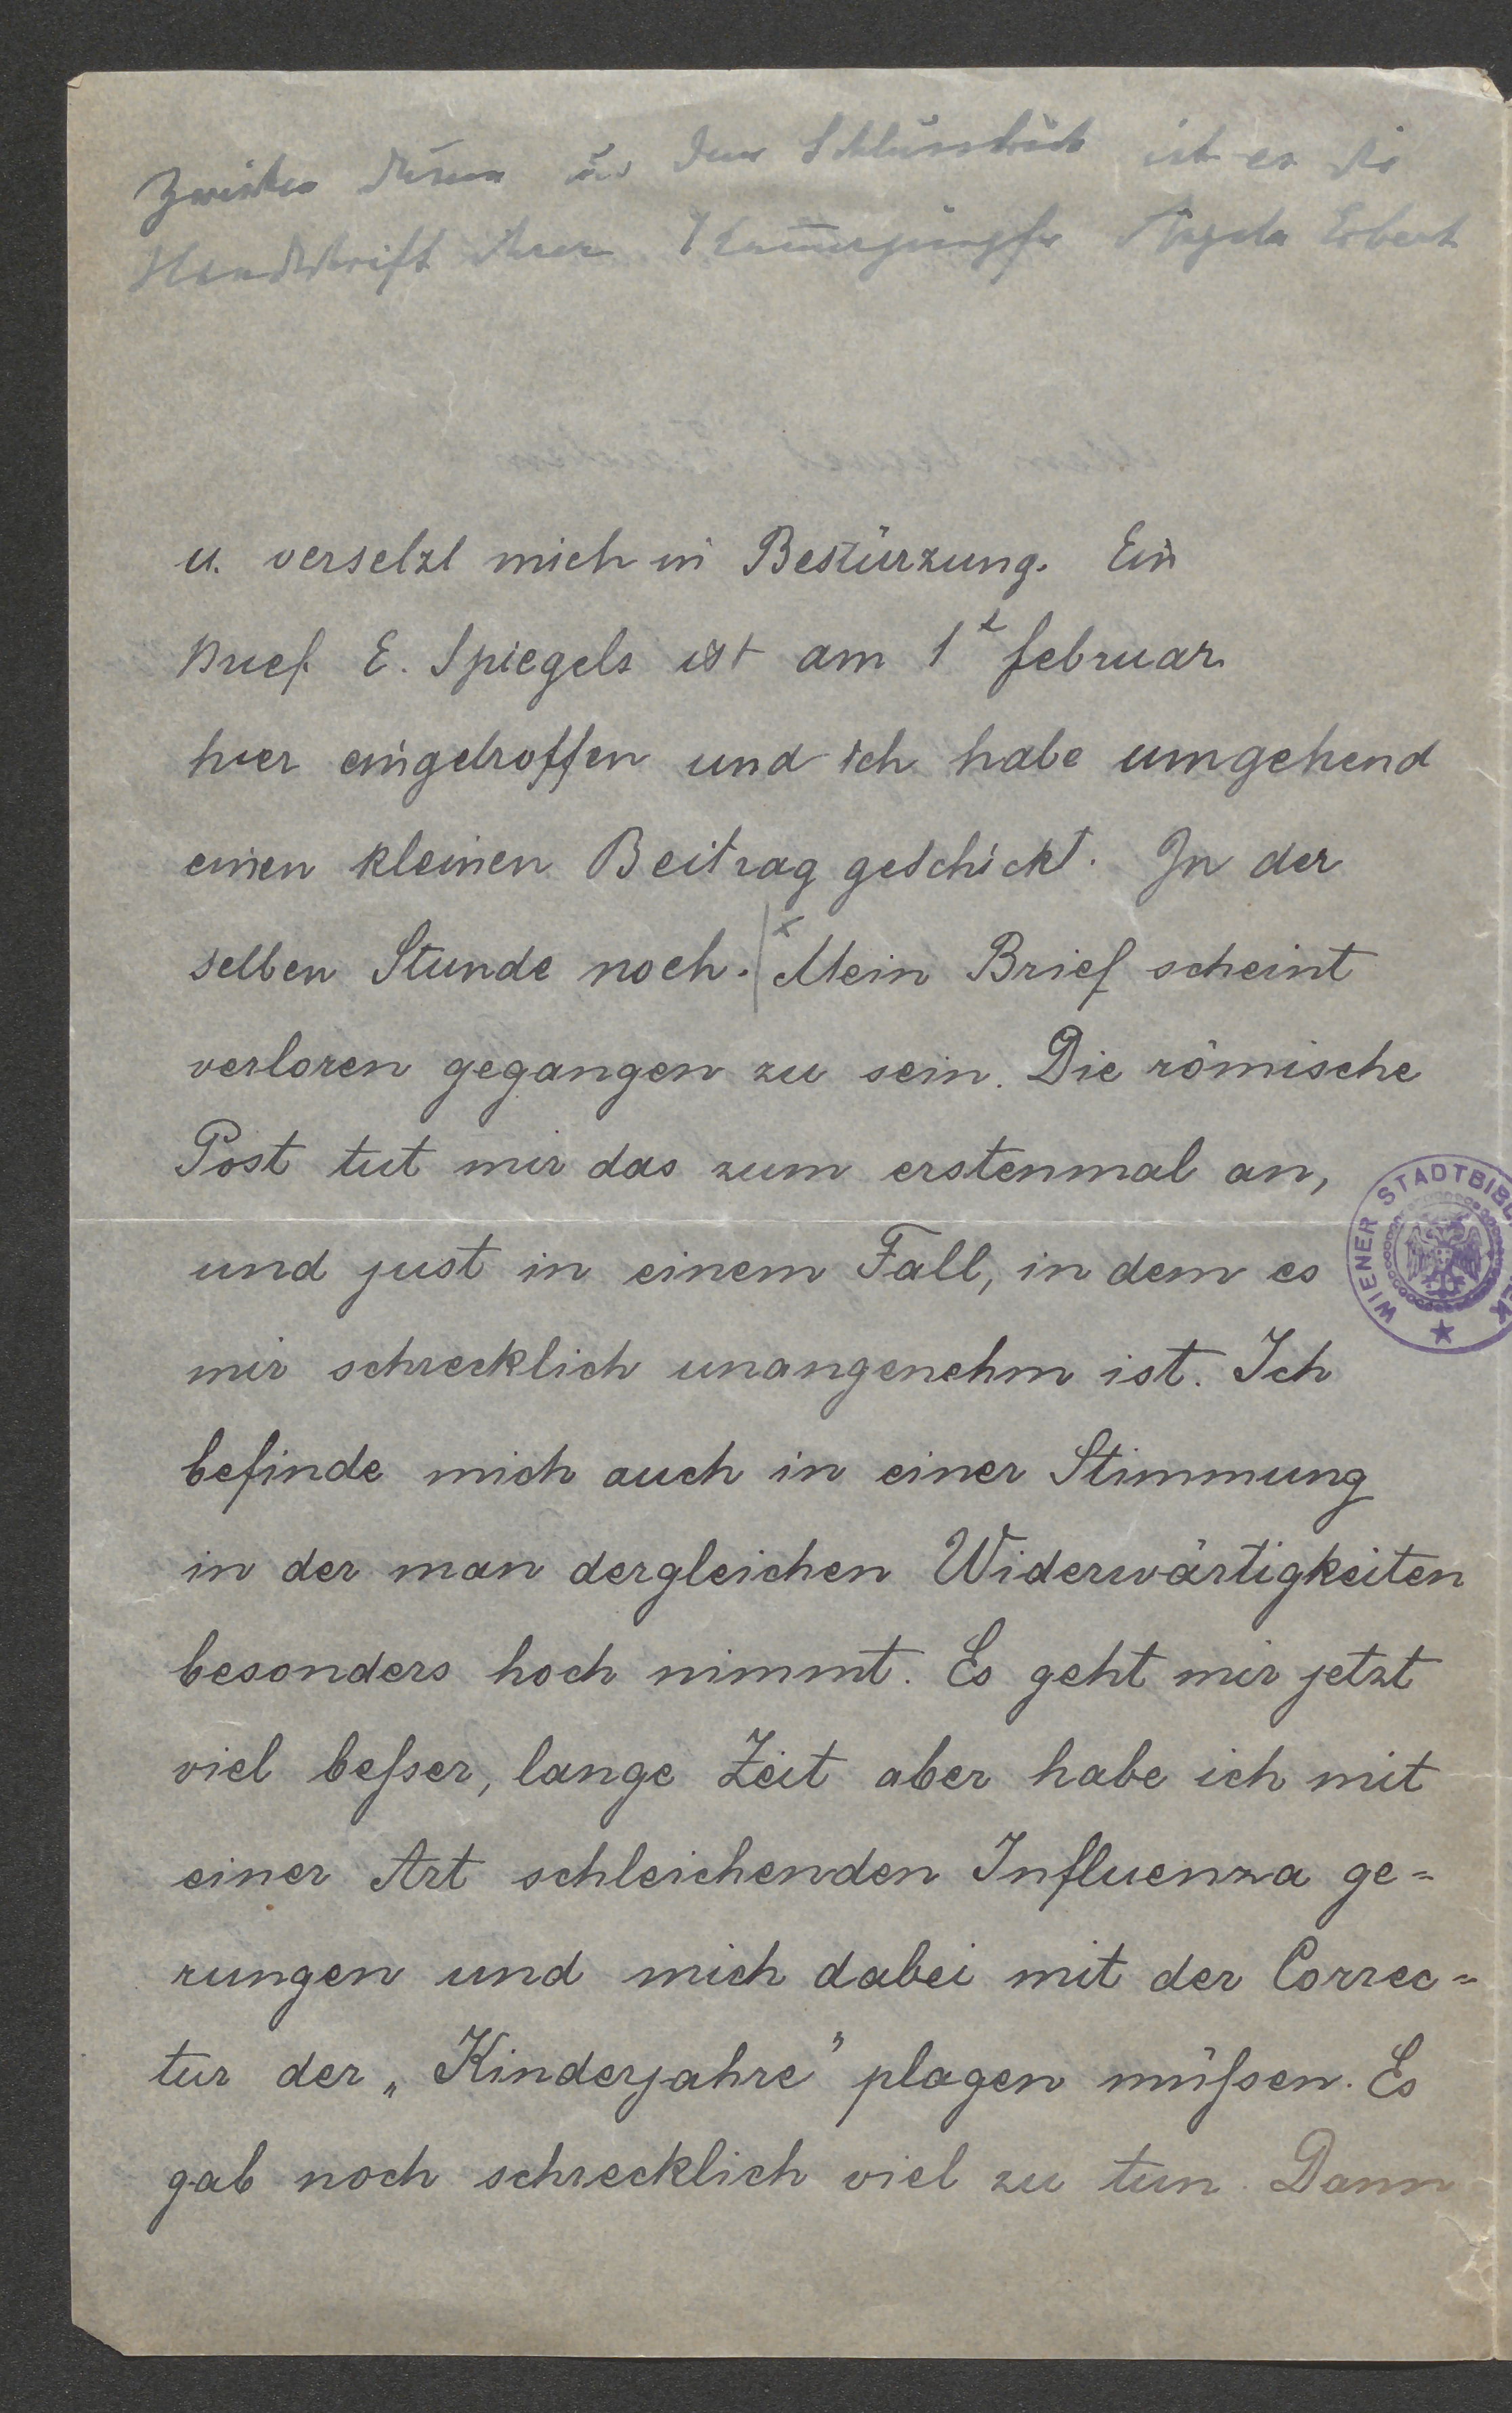 Zwischen diesem u. dem Schlussstrich ist es die
Handschrift ihrer Kammerjungfer
u. versetzt mich in Bestürzung. Ein
Brief E. Spiegels ist am 1t februar
hier eingetroffen und ich habe umgehend
einen kleinen Beitrag geschickt. In der
selben Stunde noch. |x Mein Brief scheint
verloren gegangen zu sein. Die römische
Post tut mir das zum erstenmal an,
und just in einem Fall, in dem es
mir schrecklich unangenehm ist. Ich
befinde mich auch in einer Stimmung
in der man dergleichen Widerwärtigkeiten
besonders hoch nimmt. Es geht mir jetzt
viel beſser, lange Zeit aber habe ich mit
einer Art schleichenden Influenza ge=
rungen und mich dabei mit der Correc=
tur der „Kinderjahre” plagen müſsen. Es
gab noch schrecklich viel zu tun. Dann
WIENER STADTBIB